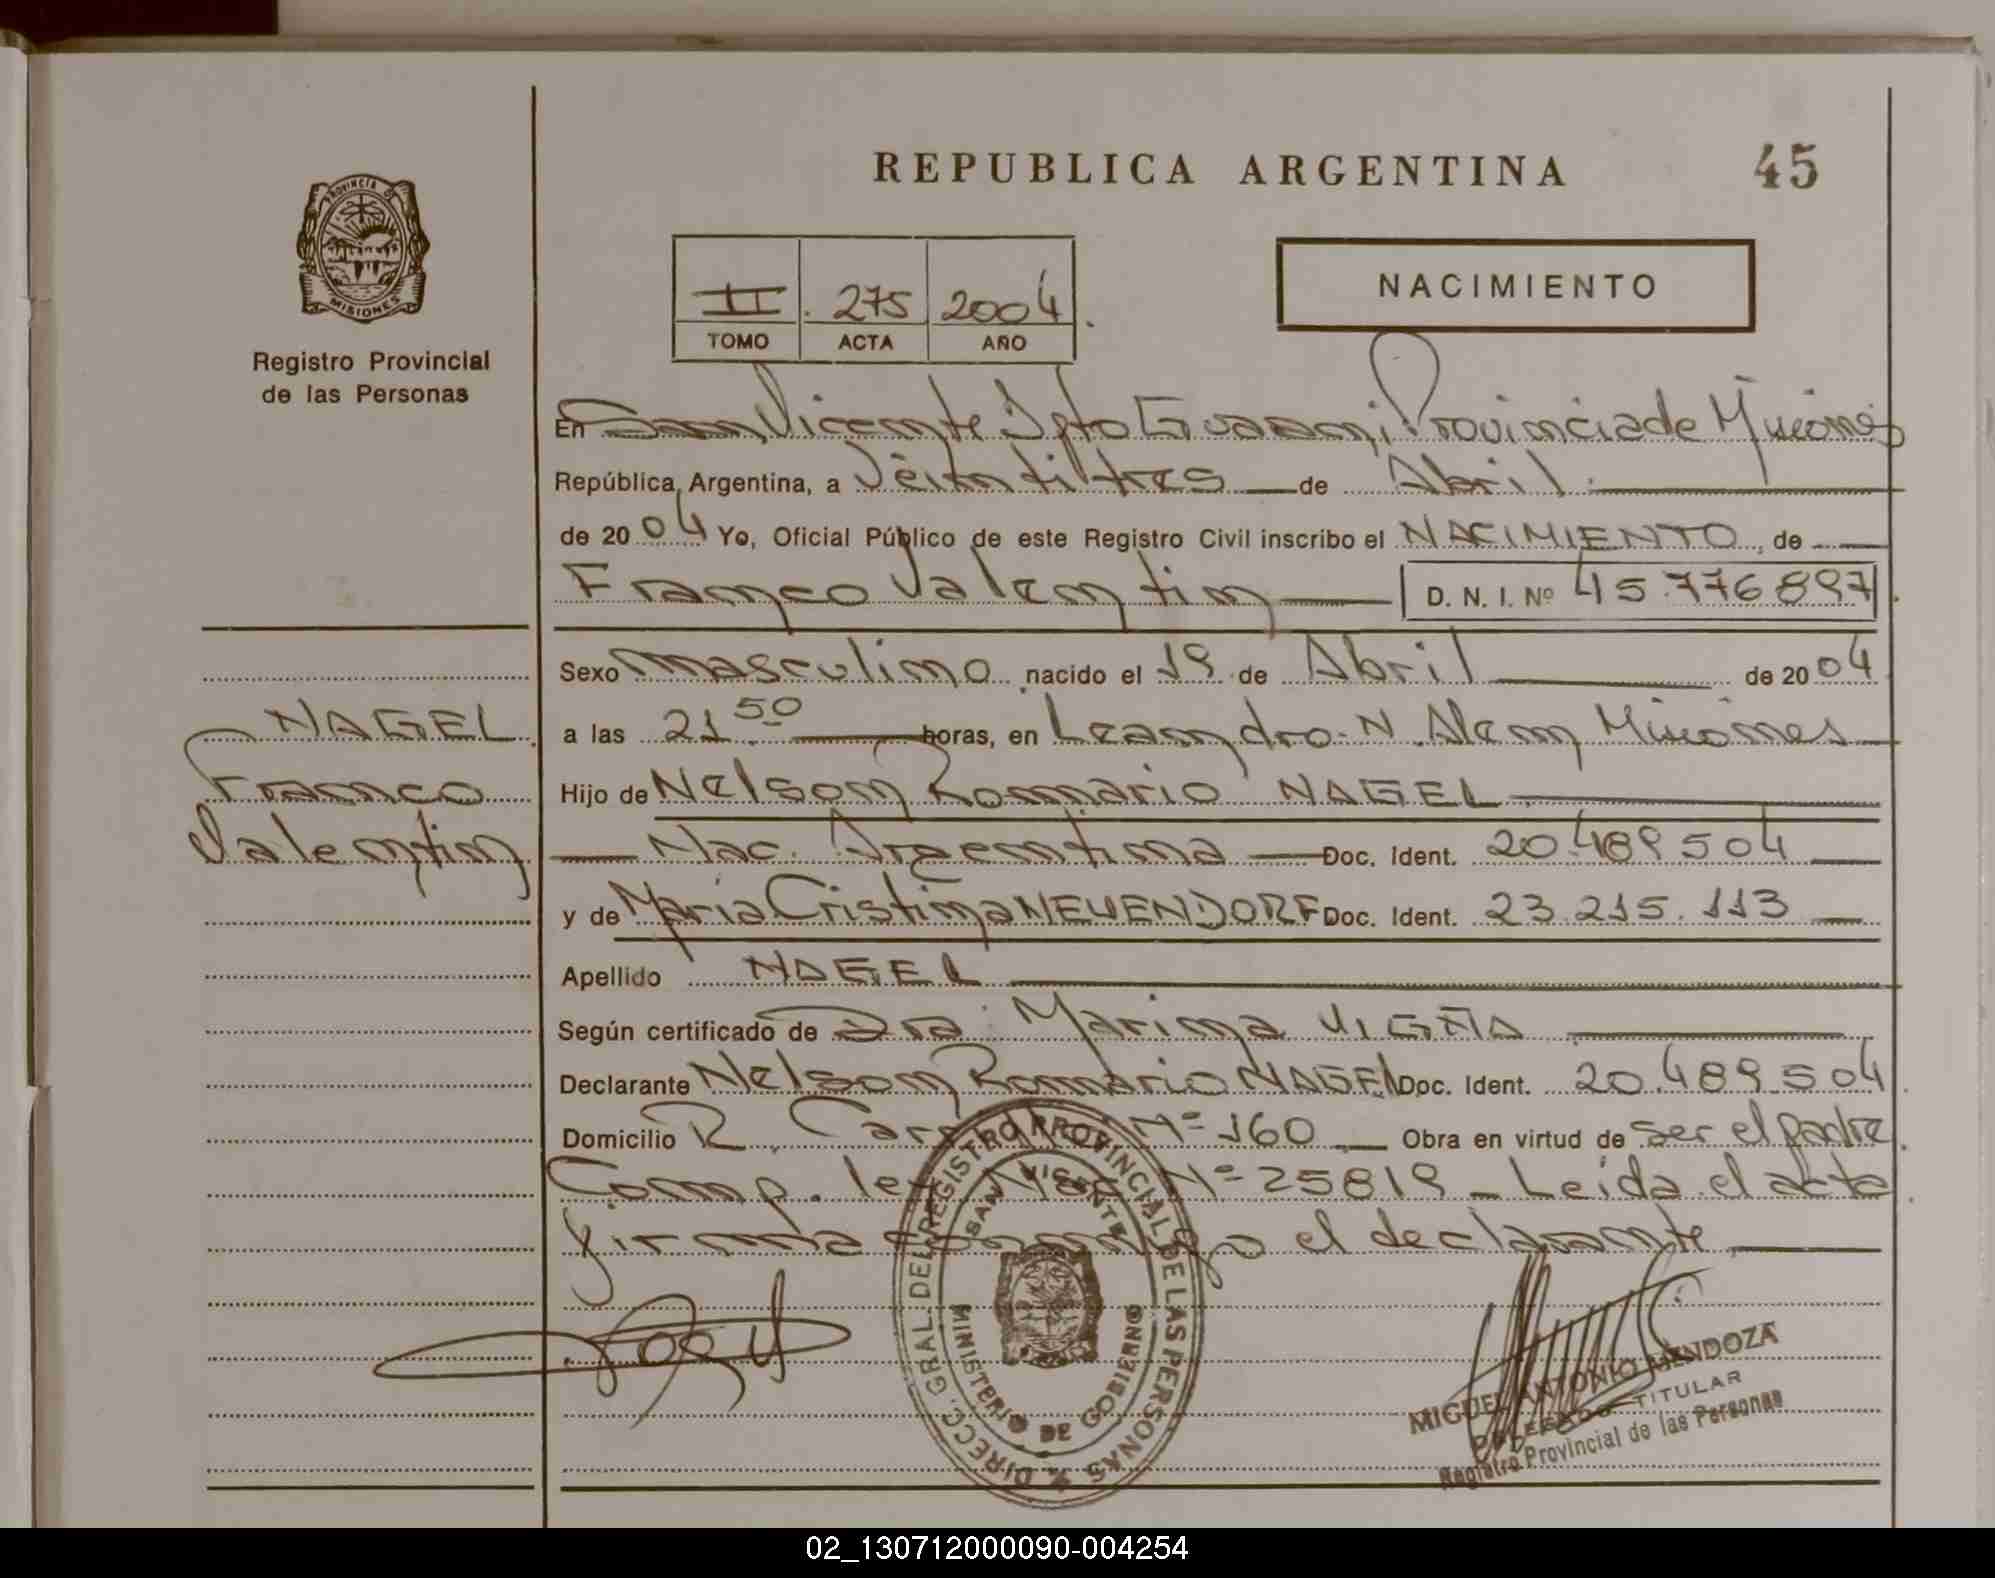 REPUBLICA ARGENTINA
45
PROVINCIA DE
MISIONES
Registro Provincial
de las Personas
II 275 2004
TOMO ACTA AÑO
NACIMIENTO
En San Vicente Dpto Guarani Provincia de Misiones
República Argentina, a Veintitres de Abril
de 2004 Yo, Oficial Público de este Registro Civil inscribo el NACIMIENTO, de
Franco Valentin D. N. I. Nº 45.776897
Sexo masculino nacido el 19 de Abril de 2004
a las 21 50 horas, en Leandro N. Alem Misiones
Hijo de Nelson Romario NAGEL
Nac. Argentina Doc. Ident. 20.489504
y de Maria Cristina NEUENDORF Doc. Ident. 23.215.113
Apellido NAGEL
Según certificado de Dra Marina VIGÑA
Declarante Nelson Romario NAGEL Doc. Ident. 20.489504
Domicilio R. Nº 160 Obra en virtud de ser el padre
Comp. ley Nac Nº 25819 - Leida el acta
firma conmigo el declarante
NAGEL
Franco
Valentin
DIRECC. GRAL. DEL REGISTRO PROVINCIAL DE LAS PERSONAS
SAN VICENTE
MINISTERIO DE GOBIERNO
MIGUEL ANTONIO MENDOZA
DELEGADO TITULAR
Registro Provincial de las Personas
02_130712000090-004254